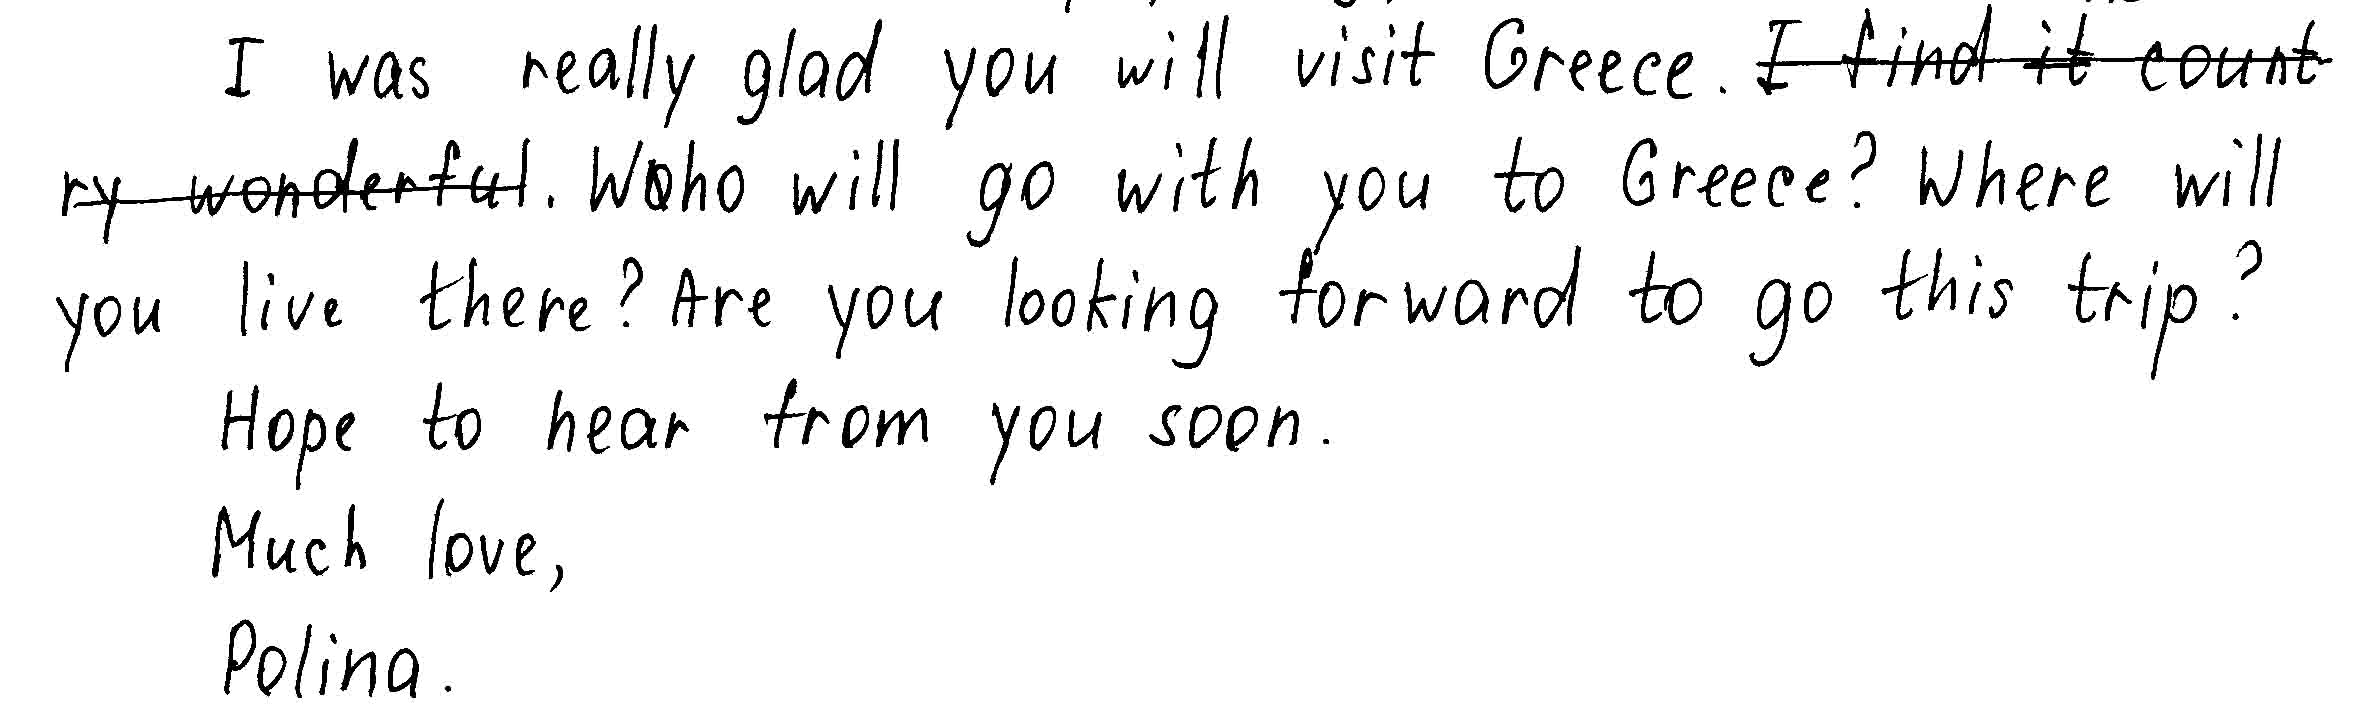 I was really glad you will visit Greece. I find it count
ry wonderful. Who will go with you to Greece? Where will
you live there? Are you looking forward to go this trip?
Hope to hear from you soon.
Much love,
Polina.